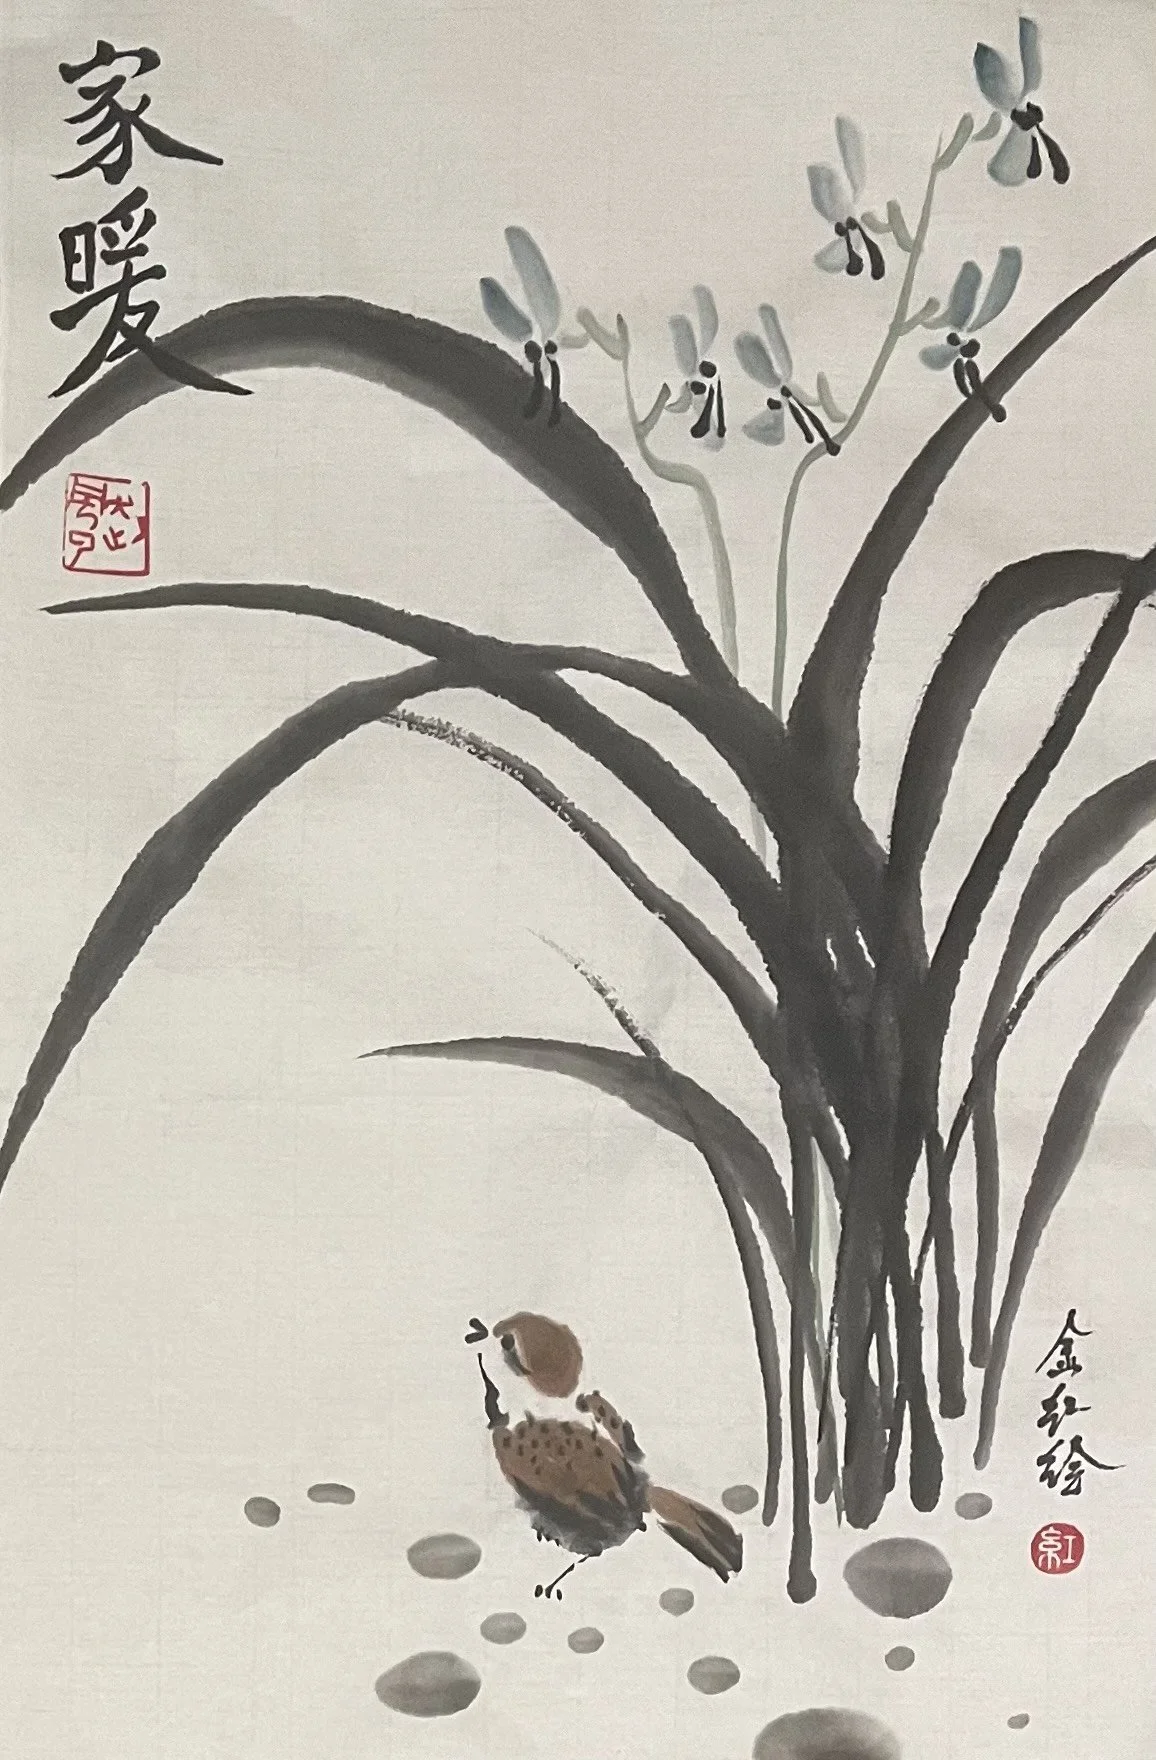 家暖
金红绘
紅